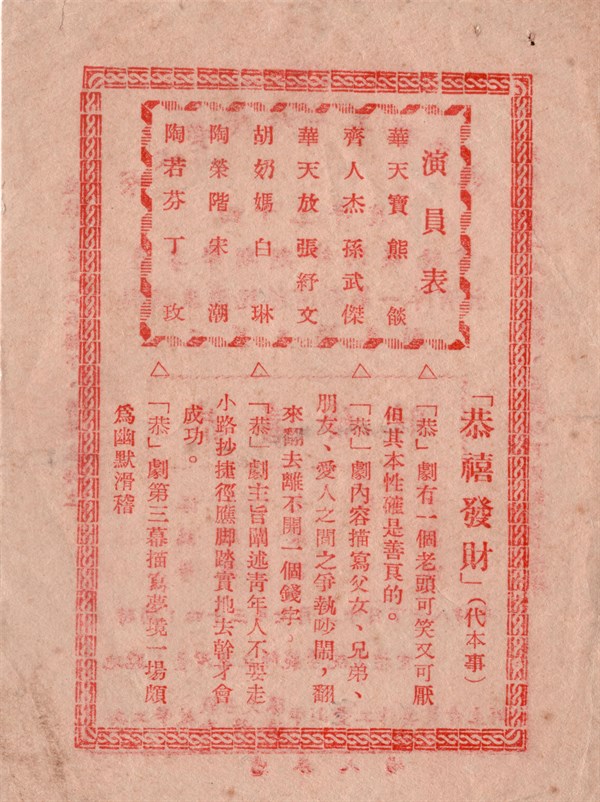 演員表
華天寶 熊燄
齊人杰 孫武傑
華天放 張紓文
胡奶媽 白琳
陶榮階 宋潮
陶若芬 丁玫
「恭禧發財」(代本事)
△「恭」劇有一個老頭可笑又可厭
但其本性確是善良的。
△「恭」劇內容描寫父女、兄弟、
朋友、愛人之間之爭執吵鬧,翻
來翻去離不開一個錢字。
△「恭」劇主旨闡述青年人不要走
小路抄捷徑應脚踏實地去幹才會
成功。
△「恭」劇第三幕描寫夢境一場頗
爲幽默滑稽